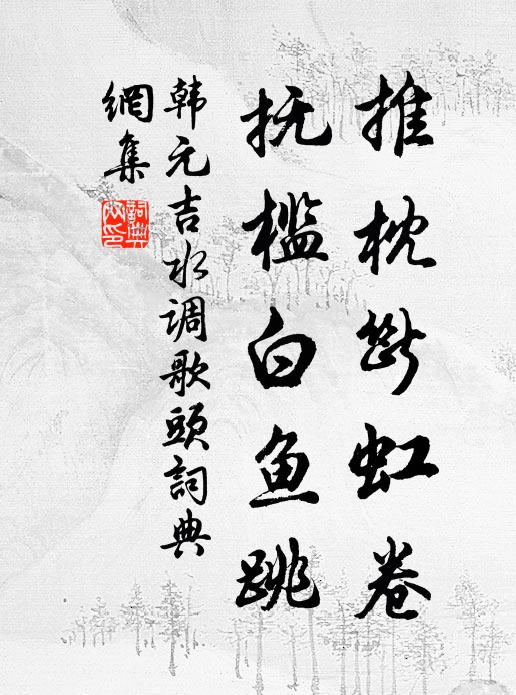 推枕断虹卷
抚槛白鱼跳
韩元吉水调歌头詞典
網集